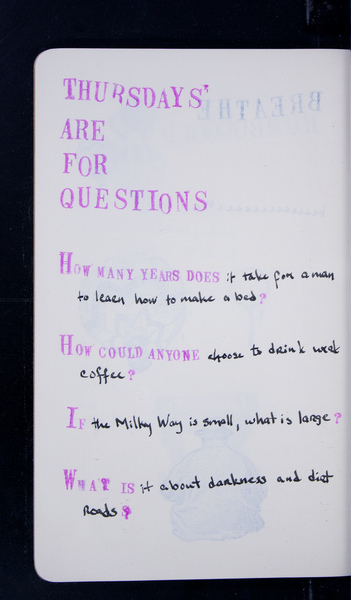 THURSDAYS'
ARE
FOR
QUESTIONS
BREATHE
HOW MANY YEARS DOES it take for a man
to learn how to make a bed?
HOW COULD ANYONE choose to drink weak
coffee?
IF the Milky Way is small, what is large?
WHAT IS it about darkness and dirt
roads?